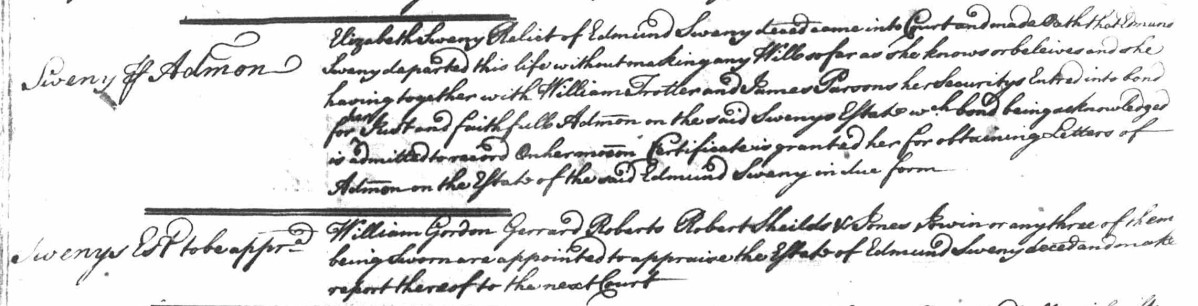 Sweny ff Admon
Elizabeth Sweny Relict of Edmund Sweny deced came into Court and made Oath that Edmund
Sweny departed this life without making any Will so far as she knows or beleives and she
having together with William Trotler and James Parsons her Securitys Entred into bond
for her Just and faithfull Admon on the said Swenys Estate wch bond being acknowledged
is admitted to record On her mocon Certificate is granted her for obtaining Letters of
Admon on the Estate of the said Edmund Sweny in due form
Swenys Est. to be apprd
William Gordon Gerrard Roberts Robert Sheilds & Jones Irwin or any three of them
being Sworn are appointed to appraise the Estate of Edmund Sweny deced and make
report thereof to the next Court